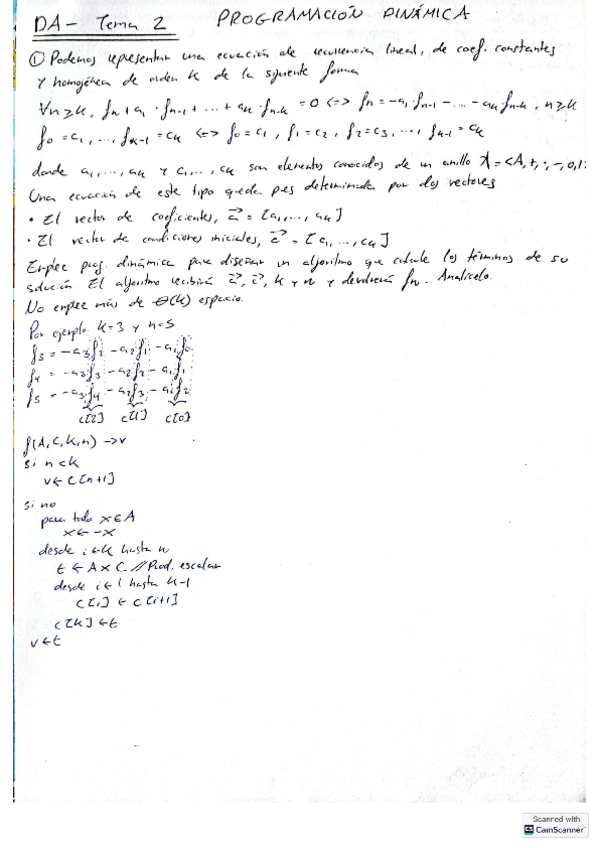 DA - Tema 2 PROGRAMACIÓN DINÁMICA
① Podemos representar una ecuación de recurrencia lineal, de coef. constantes
y homogénea de orden k de la siguiente forma
∀n≥k, fn + a1·fn-1 + ... + ak·fn-k = 0 <=> fn = -a1fn-1 - ... - akfn-k, n≥k
f0 = c1, ..., fk-1 = ck <=> f0 = c1, f1 = c2, f2 = c3, ..., fk-1 = ck
donde a1, ..., ak y c1, ..., ck son elementos conocidos de un anillo A = <A, +, ·, -, 0, 1>
Una ecuación de este tipo queda pues determinada por dos vectores
• El vector de coeficientes, a = [a1, ..., ak]
• El vector de condiciones iniciales, c = [c1, ..., ck]
Emplee prog. dinámica para diseñar un algoritmo que calcule los términos de su
solución. El algoritmo recibirá a, c, k y n y devolverá fn. Analícelo.
No emplee más de Θ(k) espacio.
Por ejemplo k=3 y n=5
f3 = -a3f2 - a2f1 - a1f0
f4 = -a3f3 - a2f2 - a1f1
f5 = -a3f4 - a2f3 - a1f2
C[2] C[1] C[0]
f(A, C, k, n) → v
si n<k
v ← C[n+1]
si no
para todo x∈A
x ← -x
desde i←k hasta n
t ← A × C //Prod. escalar
desde i←1 hasta k-1
C[i] ← C[i+1]
C[k] ← t
v ← t
Scanned with
CamScanner